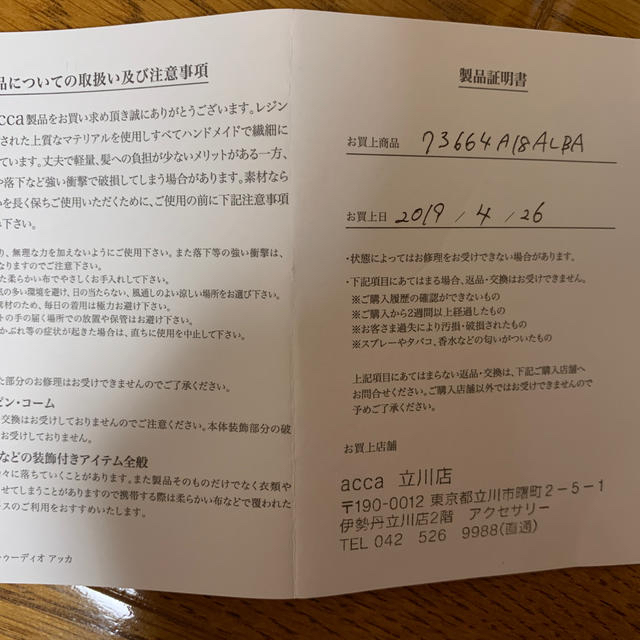 品についての取扱い及び注意事項
acca製品をお買い求め頂き誠にありがとうございます。レジン
された上質なマテリアルを使用しすべてハンドメイドで繊細に
ています。丈夫で軽量、髪への負担が少ないメリットがある一方、
や落下など強い衝撃で破損してしまう場合があります。素材なら
を長く保ちご使用いただくために、ご使用の前に下記注意事項
下さい。
り、無理な力を加えないようにご使用下さい。また落下等の強い衝撃は、
なりますのでご注意下さい。
た柔らかい布でやさしくお手入れして下さい。
気の多い環境を避け、日の当たらない、風通しのよい涼しい場所をお選び下さい。
素材のため、毎日の着用は極力お避け下さい。
トの手の届く場所での放置や保管はお避け下さい。
かぶれ等の症状が起きた場合は、直ちに使用を中止して下さい。
た部分のお修理はお受けできませんのでご了承ください。
ピン・コーム
交換はお受けしておりませんのでご注意ください。本体装飾部分の破
お受けしておりません。
などの装飾付きアイテム全般
々に落ちていくことがあります。また製品そのものだけでなく衣類や
せてしまうことがありますので携帯する際は柔らかい布などで覆われた
ースのご利用をおすすめいたします。
トゥーディオ アッカ
製品証明書
お買上商品 73664A18ALBA
お買上日 2019 / 4 / 26
・状態によってはお修理をお受けできない場合があります。
・下記項目にあてはまる場合、返品・交換はお受けできません。
※ご購入履歴の確認ができないもの
※ご購入から2週間以上経過したもの
※お客さま過失により汚損・破損されたもの
※スプレーやタバコ、香水などの匂いがついたもの
上記項目にあてはまらない返品・交換は、下記ご購入店舗へ
お問合せください。ご購入店舗以外ではお受けできませんので
予めご了承ください。
お買上店舗
acca 立川店
〒190-0012 東京都立川市曙町2-5-1
伊勢丹立川店2階 アクセサリー
TEL 042 526 9988(直通)